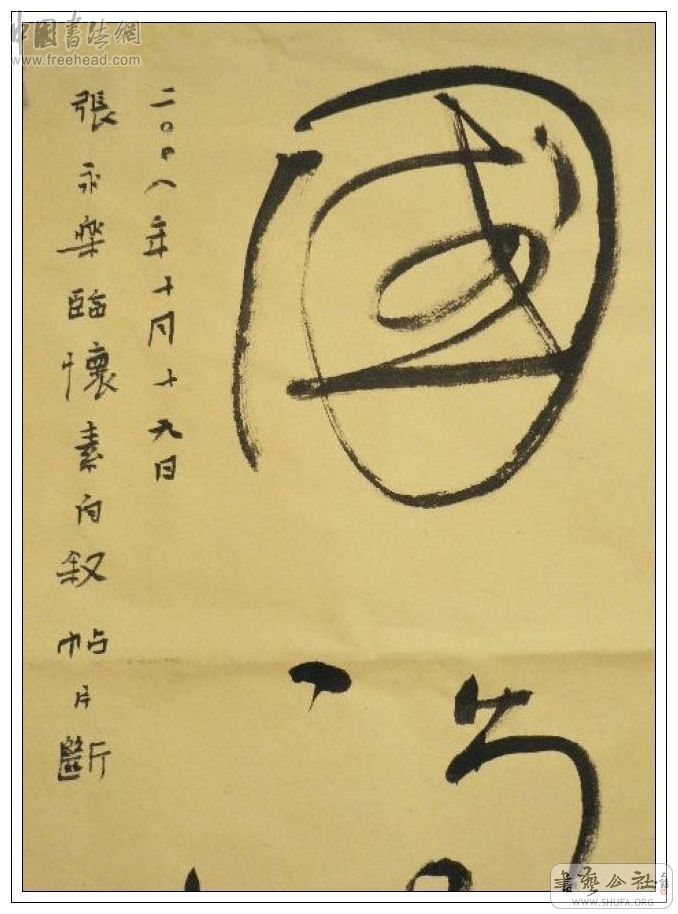 中國書法網
www.freehead.com
國
二〇〇八年十月十九日
張永樂臨懷素自叙帖片斷
書藝公社
WWW.SHUFA.ORG